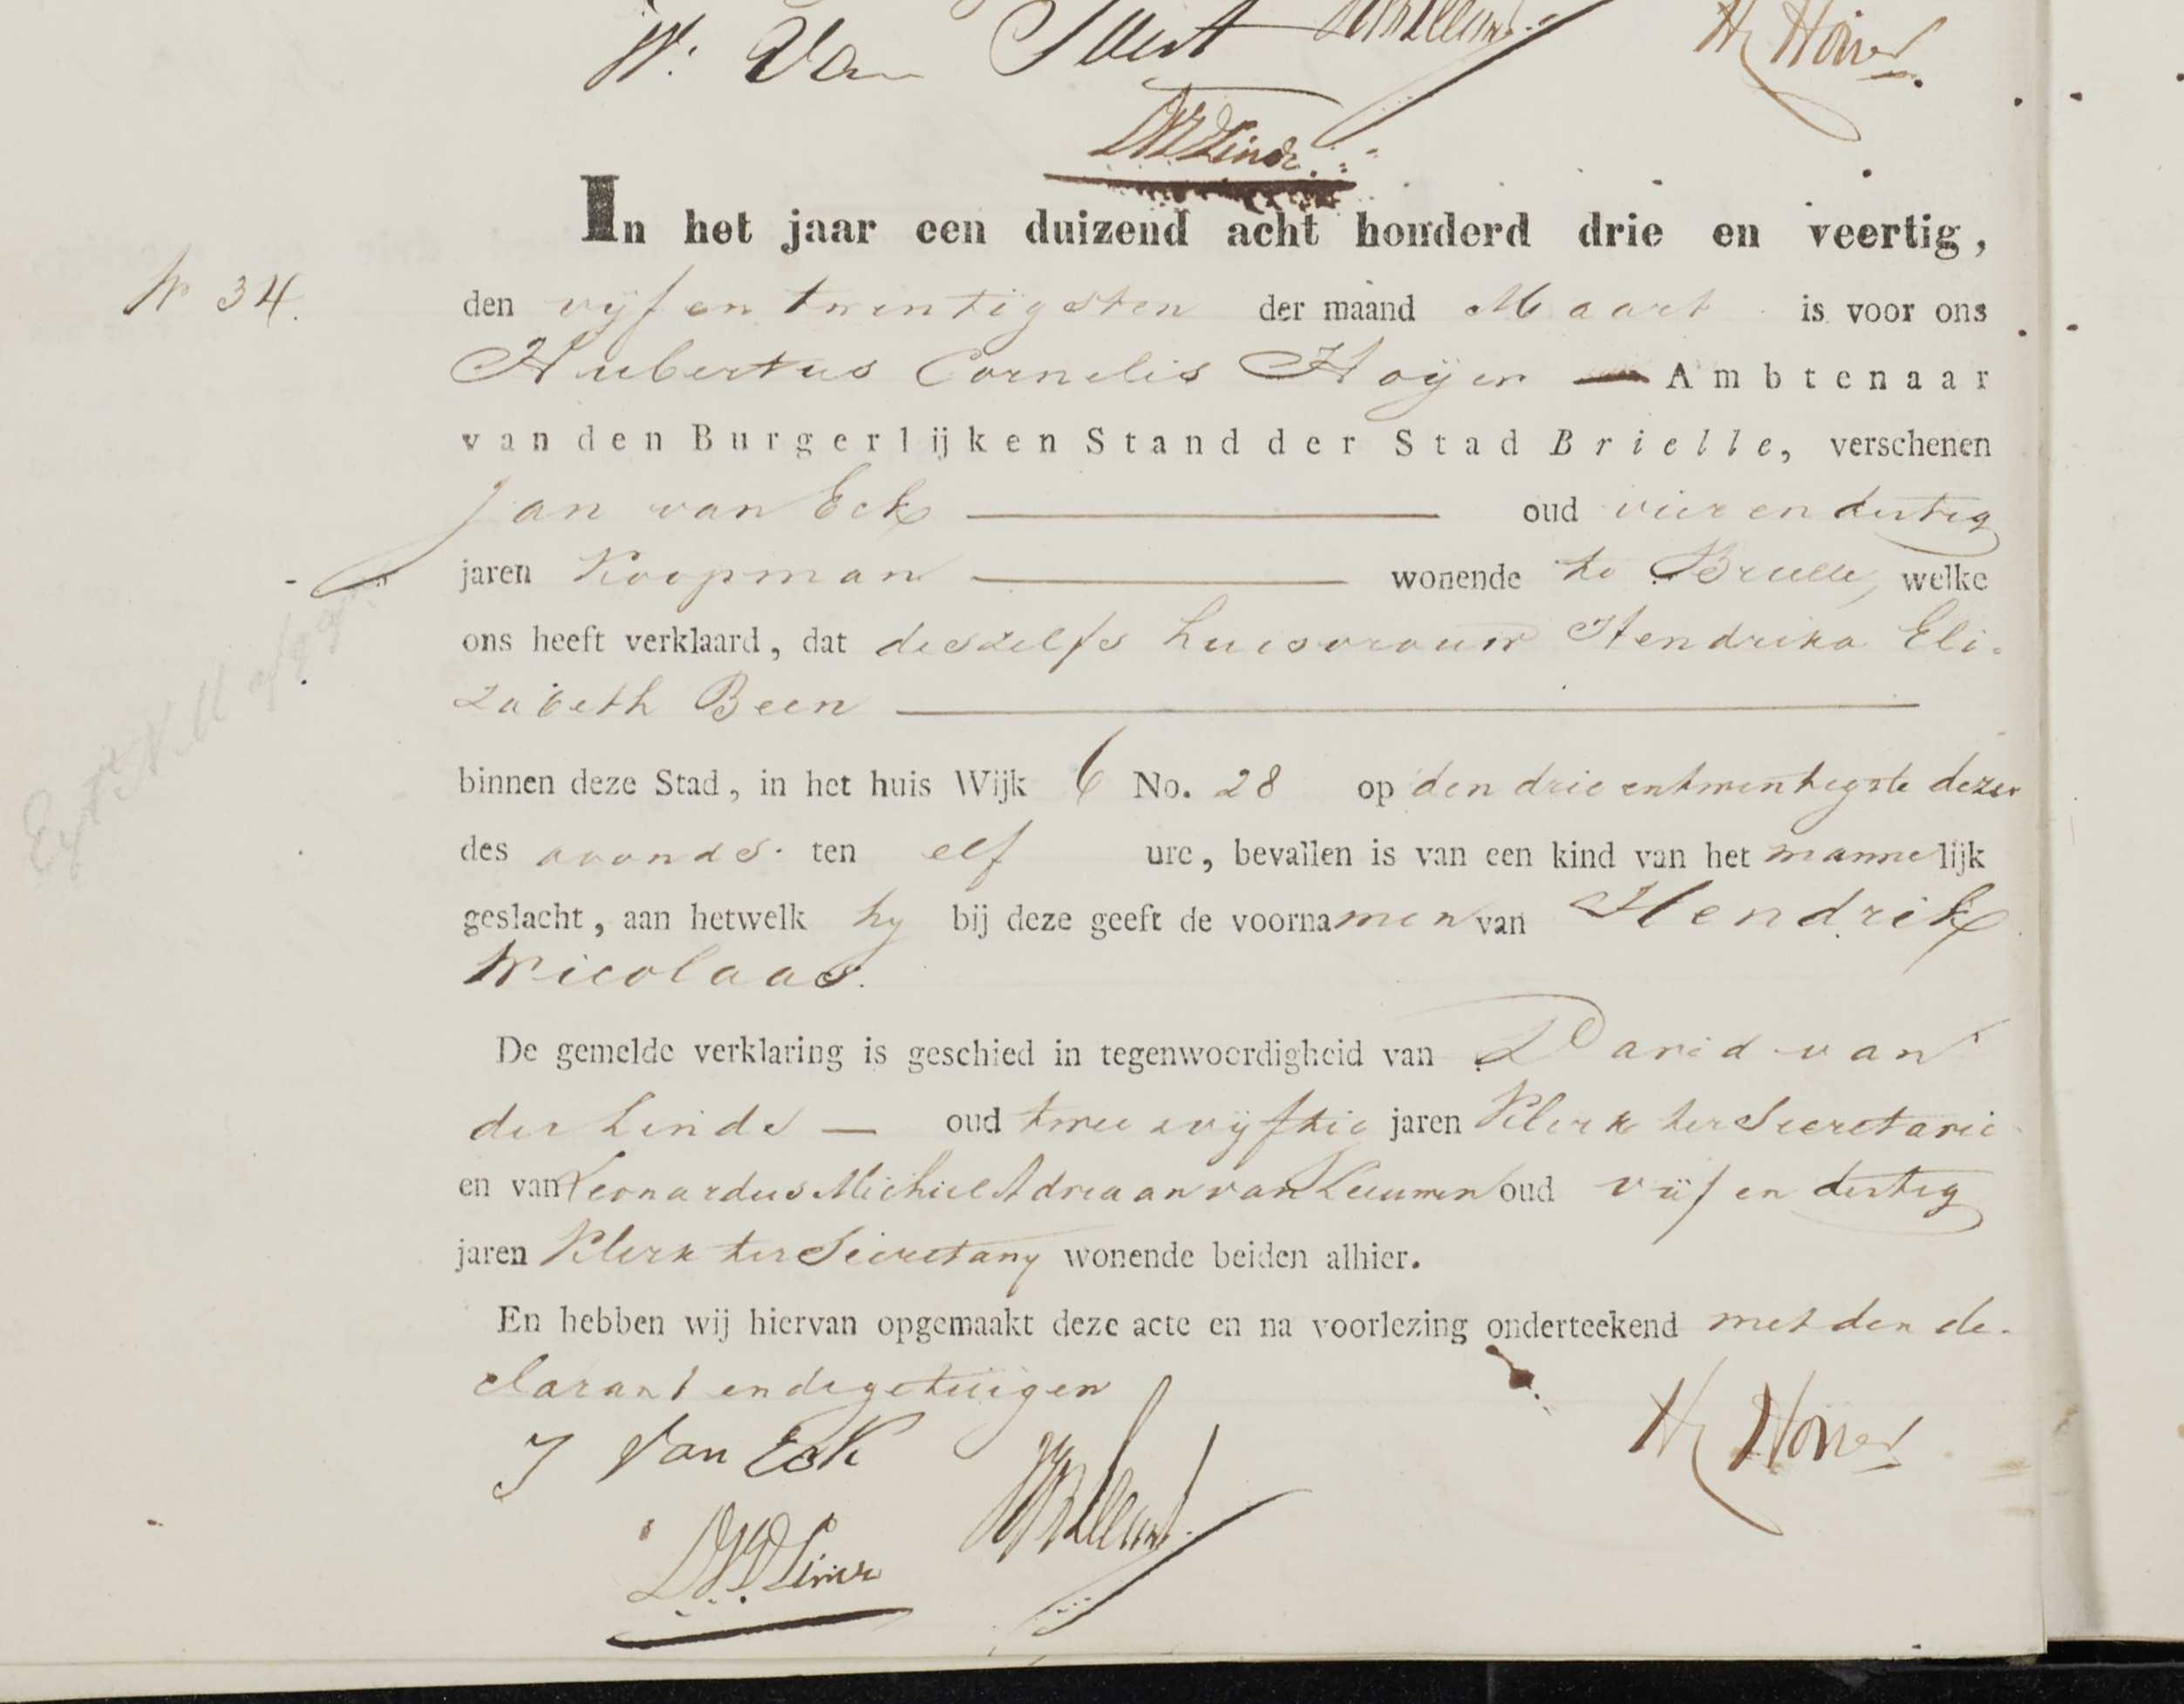 W. Van
H Hoÿer
In het jaar een duizend acht honderd drie en veertig,
N 34.
den vijf en twintigsten der maand Maart is voor ons
Hubertus Cornelis Hoÿer Ambtenaar
van den Burgerlijken Stand der Stad Brielle, verschenen
Jan van Eck oud vier en dertig
jaren Koopman wonende te Brielle, welke
ons heeft verklaard, dat deszelfs huisvrouw Hendrika Eli-
zabeth Been
binnen deze Stad, in het huis Wijk 6 No. 28 op den drie entwintigste dezer
des avonds ten elf ure, bevallen is van een kind van het mannelijk
geslacht, aan hetwelk hy bij deze geeft de voornamen van Hendrik
Nicolaas.
De gemelde verklaring is geschied in tegenwoordigheid van David van
der Linde — oud twee vijftig jaren Klerk ter Secretarie
en van Leonardus Michiel Adriaan van Leeuwen oud vijf en dertig
jaren Klerk ter Secretary wonende beiden alhier.
En hebben wij hiervan opgemaakt deze acte en na voorlezing onderteekend met den de-
clarant en de getuigen
J Van Eck
H Hoÿer